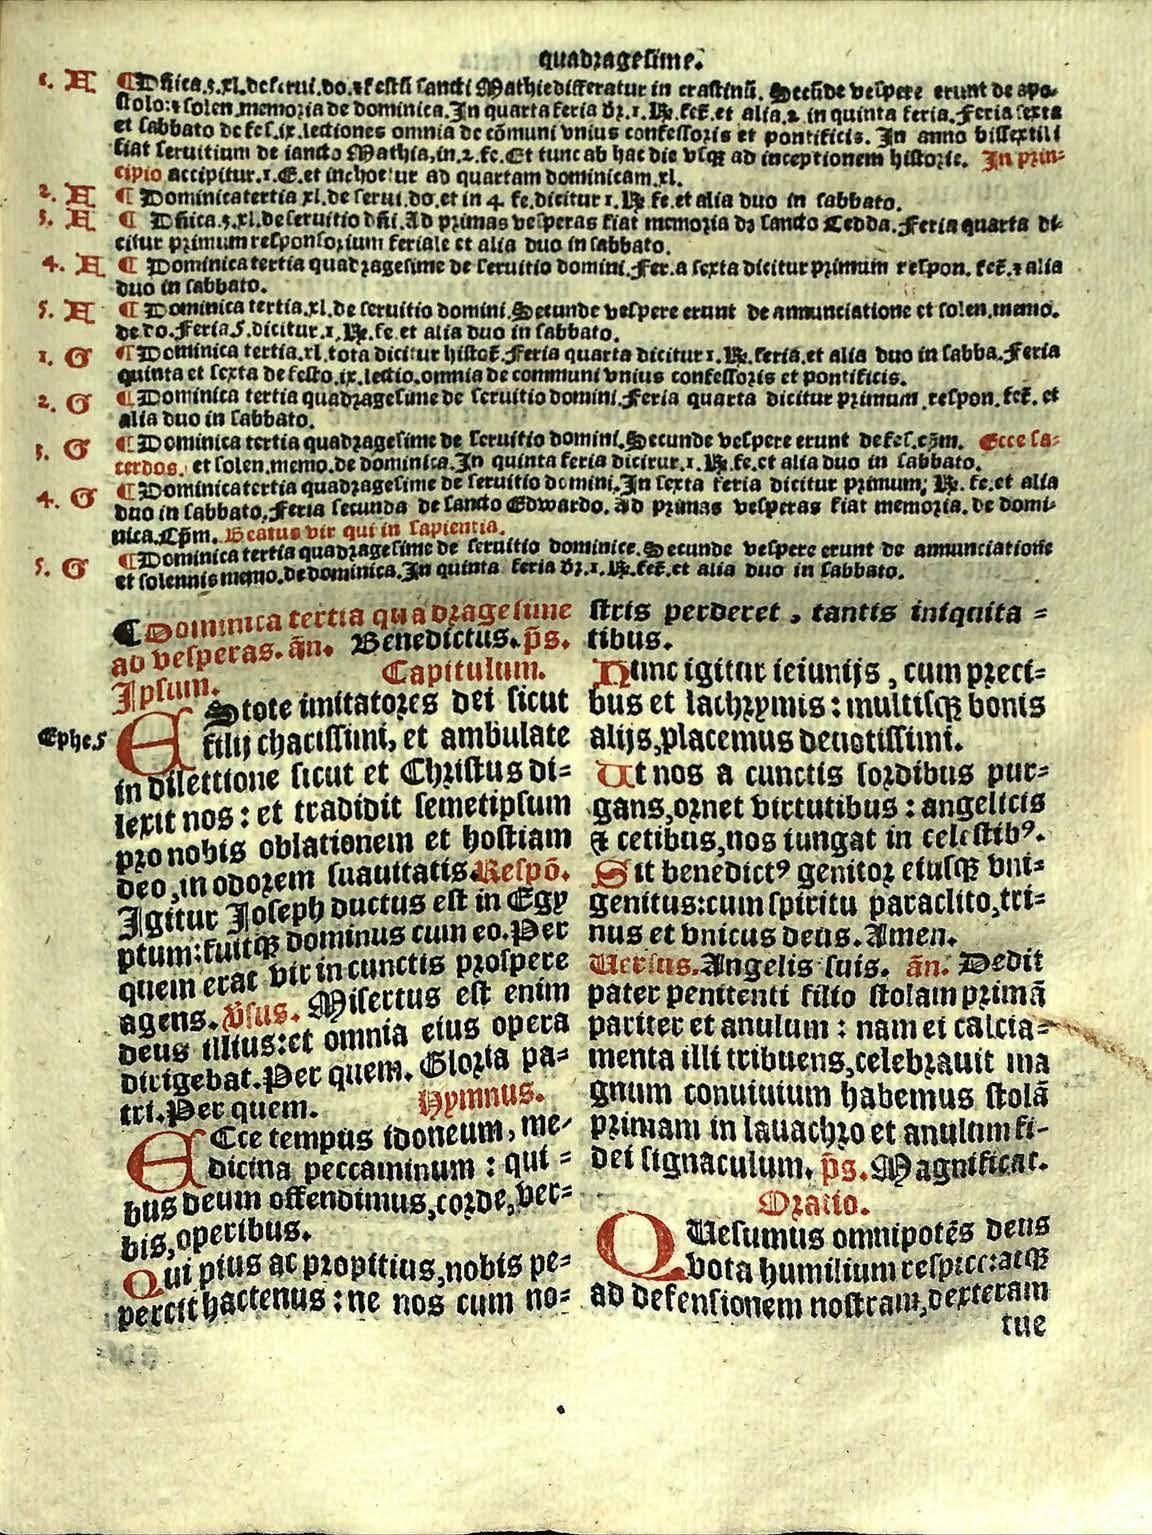 quadragesime.
1. A ¶ Dñica.3.xl.de serui.do.⁊ festũ sancti Mathie differatur in crastinũ. Secũde vespere erunt de apo-
stolo:⁊ solen.memoria de dominica.In quarta feria dr̃.1.℟. fer̃.et alia.2. in quinta feria.Feria sexta
et sabbato de fes.ix.lectiones omnia de cõmuni vnius confessoris et pontificis. In anno bissextili
fiat seruitium de sancto Mathia,in.2.fe.Et tunc ab hac die vsq̃ ad inceptionem historie. In prin-
cipio accipitur.1.E.et inchoetur ad quartam dominicam.xl.
2. A ¶ Dominica tertia xl.de serui.do.et in 4. fe.dicitur 1.℟ fe.et alia duo in sabbato.
3. A ¶ Dñica.3.xl.de seruitio dñi.Ad primas vesperas fiat memoria de sancto Cedda.Feria quarta di-
citur primum responsorium feriale et alia duo in sabbato.
4. A ¶ Dominica tertia quadragesime de seruitio domini.Fer.a sexta dicitur primum respon. fer̃.⁊ alia
duo in sabbato.
5. A ¶ Dominica tertia.xl.de seruitio domini.Secunde vespere erunt de annunciatione et solen.memo.
de do.Feria 5.dicitur.1.℟.fe.et alia duo in sabbato.
1. G ¶ Dominica tertia.xl.tota dicitur histor̃.Feria quarta dicitur 1.℟.feria.et alia duo in sabba.Feria
quinta et sexta de festo.ix.lectio.omnia de communi vnius confessoris et pontificis.
2. G ¶ Dominica tertia quadragesime de seruitio domini.Feria quarta dicitur primum.respon.fer̃. et
alia duo in sabbato.
3. G ¶ Dominica tertia quadragesime de seruitio domini.Secunde vespere erunt de fes.cp̃m. Ecce sa-
cerdos. et solen.memo.de dominica.In quinta feria dicitur.1.℟.fe.et alia duo in sabbato.
4. G ¶ Dominica tertia quadragesime de seruitio domini.In sexta feria dicitur primum. ℟. fe.et alia
duo in sabbato.Feria secunda de sancto Edwardo. ad primas vesperas fiat memoria. de domi-
nica.Cp̃m. Beatus vir qui in sapientia.
5. G ¶ Dominica tertia quadragesime de seruitio dominice.Secunde vespere erunt de annunciatione
et solennis memo.de dominica.In quinta feria dr̃.1.℟.fer̃.et alia duo in sabbato.
¶ Dominica tertia quadragesime
ad vesperas. ãn. Benedictus. p̃s.
Ipsum. Capitulum.
EStote imitatores dei sicut
Ephe.5 filij charissimi, et ambulate
in dilettione sicut et Christus di-
lexit nos : et tradidit semetipsum
pro nobis oblationem et hostiam
deo,in odorem suauitatis.Respõ.
Igitur Joseph ductus est in Egy
ptum:fuitq̃ dominus cum eo.Per
quem erat vir in cunctis prospere
agens. v̄sus. Misertus est enim
deus illius:et omnia eius opera
dirigebat.Per quem. Gloria pa-
tri.Per quem. Hymnus.
ECce tempus idoneum, me-
dicina peccaminum : qui-
bus deum offendimus,corde,ver-
bis,operibus.
Qui pius ac propitius,nobis pe-
percit hactenus : ne nos cum no-
stris perderet, tantis iniquita-
tibus.
Nunc igitur ieiunijs, cum preci-
bus et lachrymis : multisq̃ bonis
alijs,placemus deuotissimi.
Ut nos a cunctis sordibus pur-
gans,ornet virtutibus : angelicis
⁊ cetibus,nos iungat in celestibꝰ.
Sit benedictꝰ genitor eiusq̃ vni-
genitus:cum spiritu paraclito,tri-
nus et vnicus deus. Amen.
Uersus.Angelis suis. ãn. Dedit
pater penitenti filio stolam primã
pariter et anulum : nam ei calcia-
menta illi tribuens,celebrauit ma
gnum conuiuium habemus stolã
primam in lauachro et anulum fi-
dei signaculum. p̃s.Magnificat.
Oratio.
QUesumus omnipotẽs deus
vota humilium respice:atq̃
ad defensionem nostram,dexteram
tue